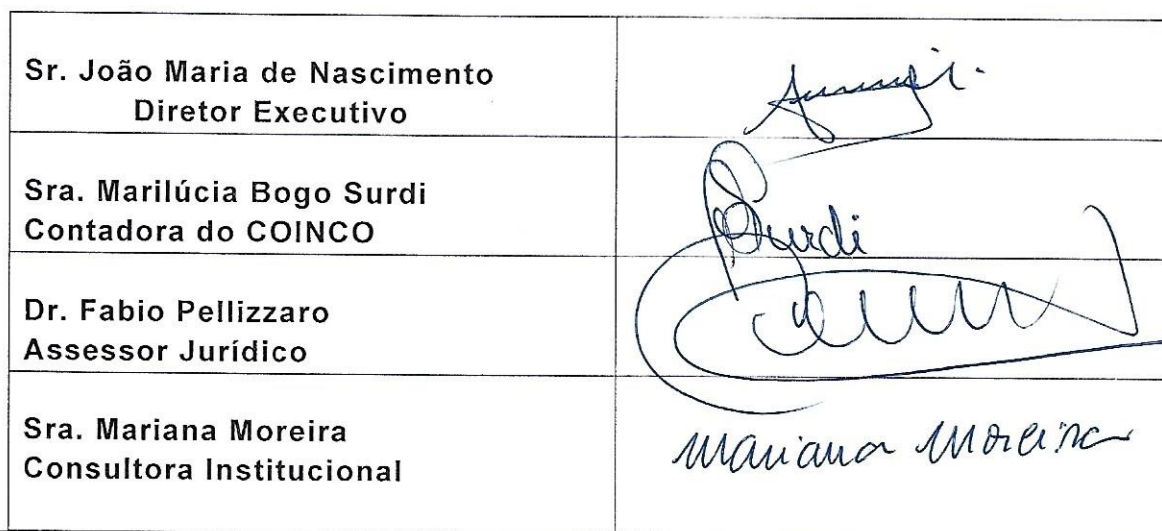 Sr. João Maria de Nascimento
Diretor Executivo
Sra. Marilúcia Bogo Surdi
Contadora do COINCO
Surdi
Dr. Fabio Pellizzaro
Assessor Jurídico
Sra. Mariana Moreira
Consultora Institucional
Mariana Moreira